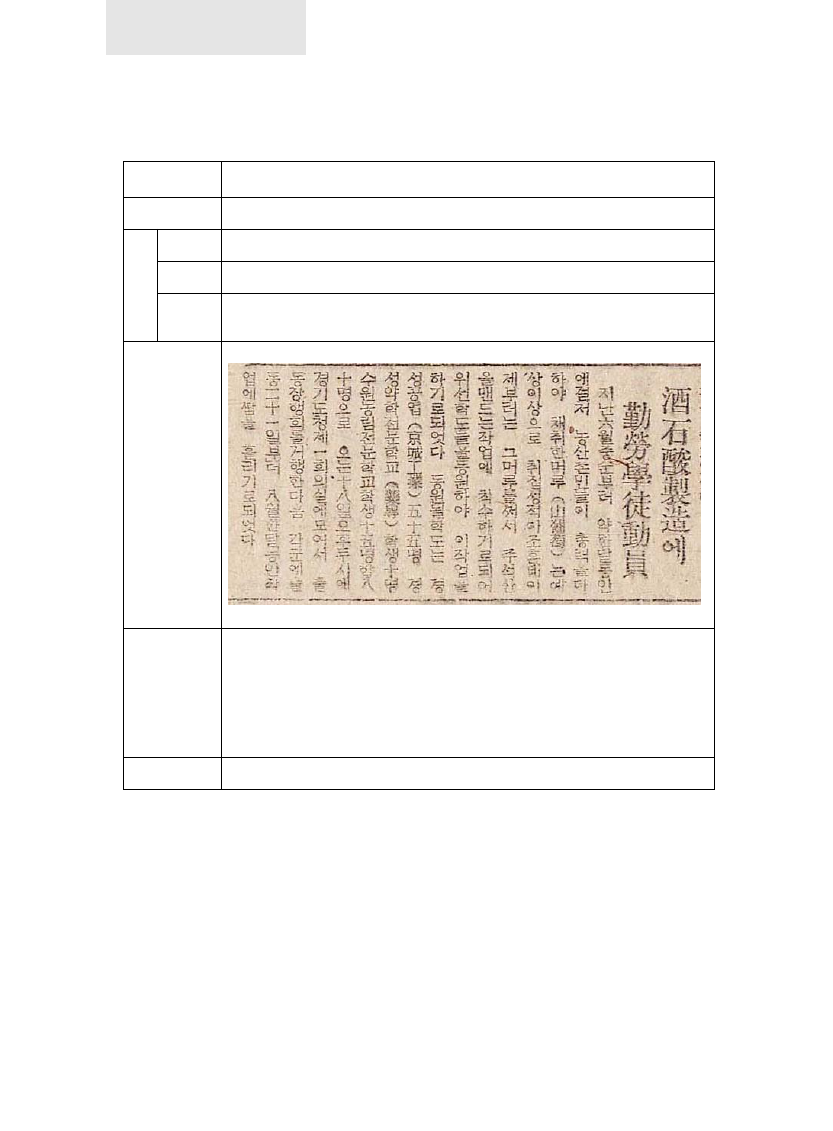 酒石酸製造에
勤勞學徒動員
지난六월중순부터 약한달동안
에걸처 농산촌민들이 총력을다
하야 채취한머루(山葡萄)는예
상이상으로 취집성적이조흔바이
제부터는 그머루를써서 주석산
을맨드는작업에 착수하기로되어
위선학도들을동원하야 이작업을
하기로되엿다 동원될학도는 경
성공업(京城工業)五十五명 경
성약학전문학교(藥專)학생十명
수원농림전문학교학생十五명양八
十명으로 오는十八일오후두시에
경기도청제一회의실에모여서 출
동장행회를거행한다음 각군에출
동二十一일부터 八월한달동안작
업에땀을 흘리기로되엿다